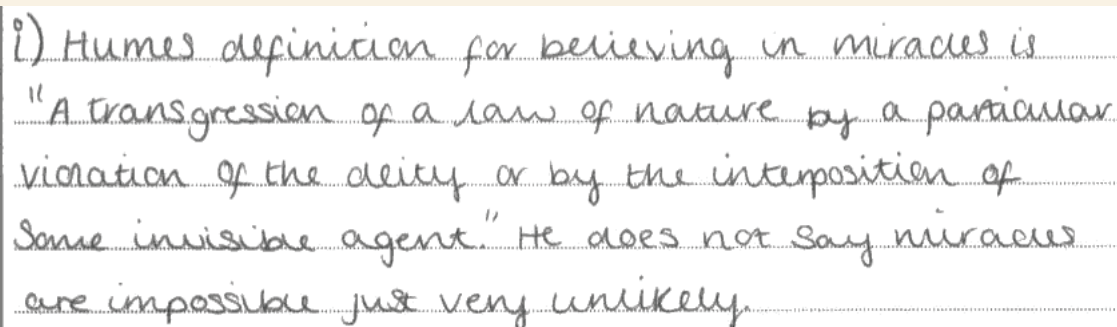 i) Humes definition for believing in miracles is
"A transgression of a law of nature by a particular
violation of the deity or by the interposition of
some invisible agent." He does not say miracles
are impossible just very unlikely.